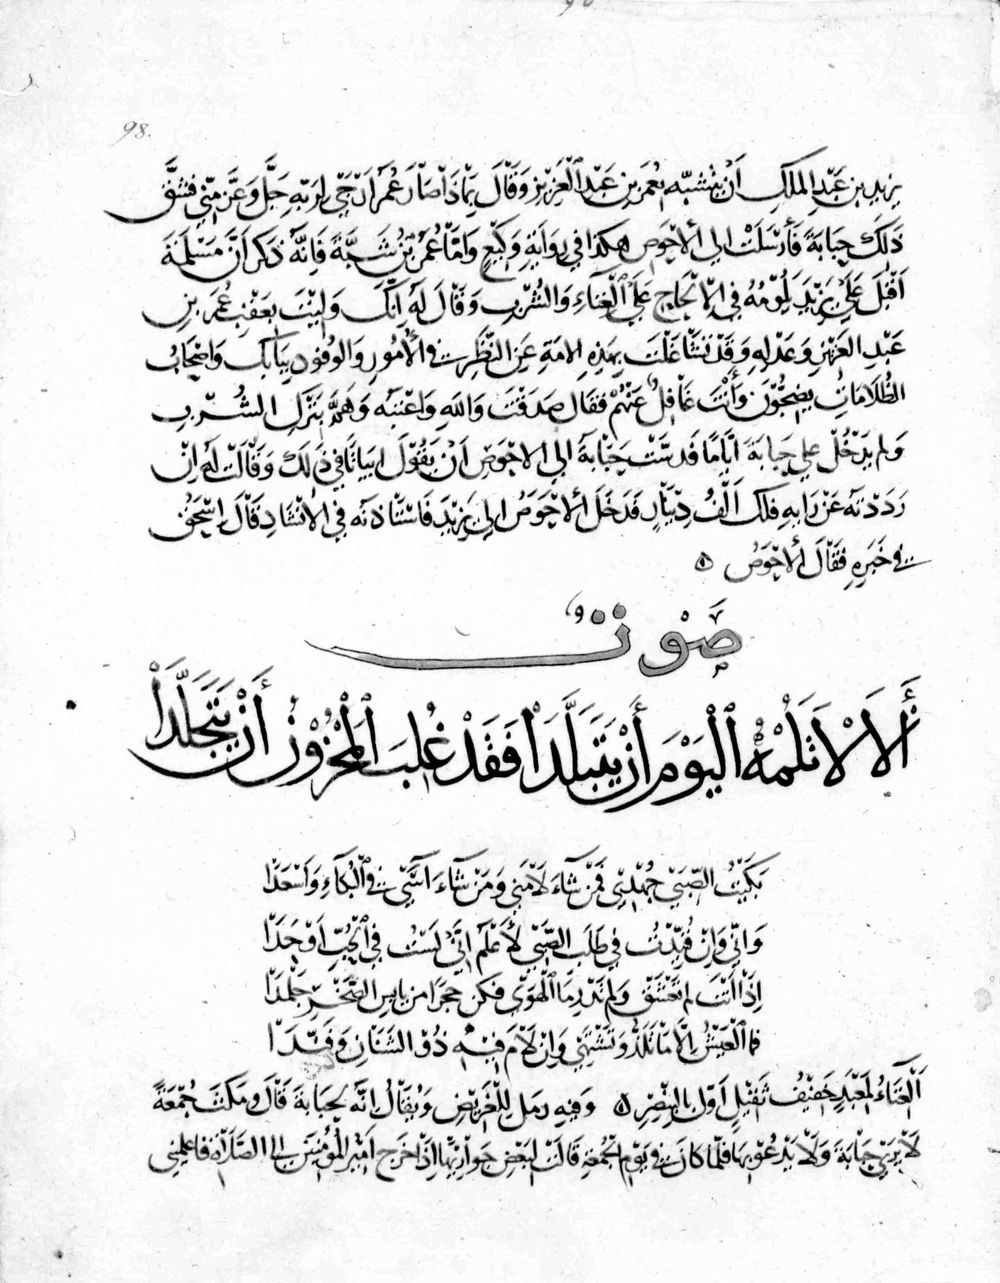 98.
يزيد بن عبد الملك أن يتشبه بعمر بن عبد العزيز وقال بماذا صار عمر أرجى لربه جل وعز مني فشق
ذلك حبابة فأرسلت الى الأحوص هكذا في رواية وكيع وأما عمر بن شبة فإنه ذكر أن مسلمة
أقبل على يزيد يلومه في الإلحاح على الغناء والشرب وقال له إنك وليت بعقب عمر بن
عبد العزيز وعدله وقد تشاغلت بهذه الأمة عن النظر في الأمور والوفود ببابك وأصحاب
الظلامات يضجون وأنت غافل عنهم فقال صدقت والله وأعتبه وهم بترك الشرب
ولم يدخل على حبابة أياما فدست حبابة الى الأحوص أن يقول أبياتا في ذلك وقالت له إن
رددته عن رأيه فلك ألف دينار فدخل الأحوص الى يزيد فاستأذنه في الإنشاد قال إسحق
في خبره فقال الأحوص ه
صوت
ألا لا تلمه اليوم أن يتبلدا فقد غلب المحزون أن يتجلدا
بكيت الصبى جهدي فمن شاء لامني ومن شاء آسى في البكاء وأسعدا
وإني وإن فندت في طلب الصبى لأعلم أني لست في الحب أوحدا
إذا أنت لم تعشق ولم تدر ما الهوى فكن حجرا من يابس الصخر جلمدا
فما العيش إلا ما تلذ وتشتهي وإن لام فيه ذو الشنان وفندا
الغناء لمعبد خفيف ثقيل أول بالبنصر ه وفيه رمل للغريض ويقال إنه لحبابة قال ومكث جمعة
لا يرى حبابة ولا يدعو بها فلما كان في يوم الجمعة قالت لبعض جواريها إذا خرج أمير المؤمنين الى الصلاة فأعلمني